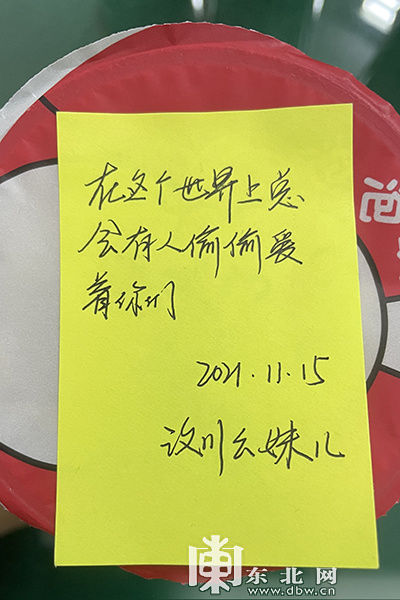 在这个世界上总
会有人偷偷爱
着你们
2021.11.15
汶川幺妹儿
东北网
www.dbw.cn